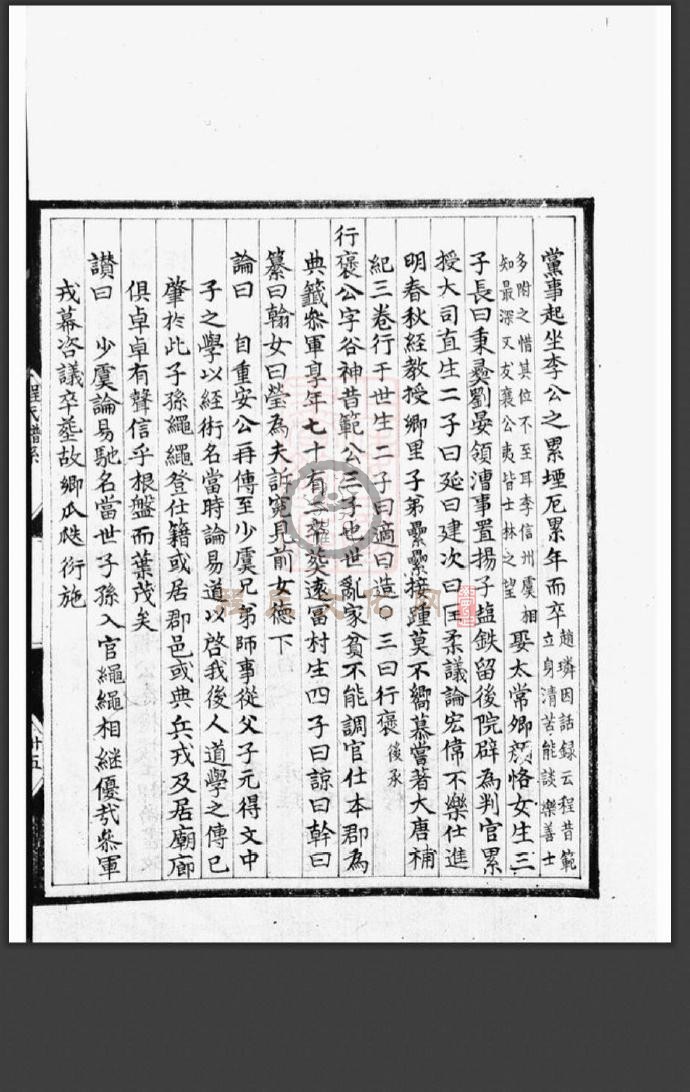 黨事起坐李公之累堙厄累年而卒趙璘因話録云程昔範立身清苦能談樂善士
多附之惜其位不至耳李信州虞相知最深又友襄公夷皆士林之望娶太常卿顔恪女生三
子長曰秉彝劉晏領漕事置揚子塩鉄留後院辟為判官累
授大司直生二子曰延曰建次曰匡柔議論宏偉不樂仕進
明春秋經教授鄉里子弟纍纍接踵莫不嚮慕嘗著大唐補
紀三卷行于世生二子曰適曰造〇三曰行褒後承
行褒公字谷神昔範公三子也世亂家貧不能調官仕本郡為
典籤叅軍享年七十有二卒葬遠冨村生四子曰諒曰幹曰
纂曰翰女曰瑩為夫訴寃見前女德下
論曰 自重安公再傳至少虞兄弟師事從父子元得文中
子之學以經術名當時論易道以啓我後人道學之傳已
肇於此子孫繩繩登仕籍或居郡邑或典兵戎及居廟廊
俱卓卓有聲信乎根盤而葉茂矣
讃曰 少虞論易馳名當世子孫入官繩繩相継優㢤叅軍
戎幕咨議卒塟故鄉瓜瓞衍施
程氏譜系
廿五